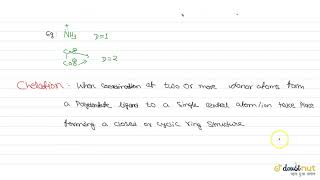 Eg NH3 D=1
COO
COO D=2
Chelation:- When coordination of two or more donor atoms from
a Polydentate ligand to a single central atom/ion take place
forming a closed or cyclic ring structure
doubtnut